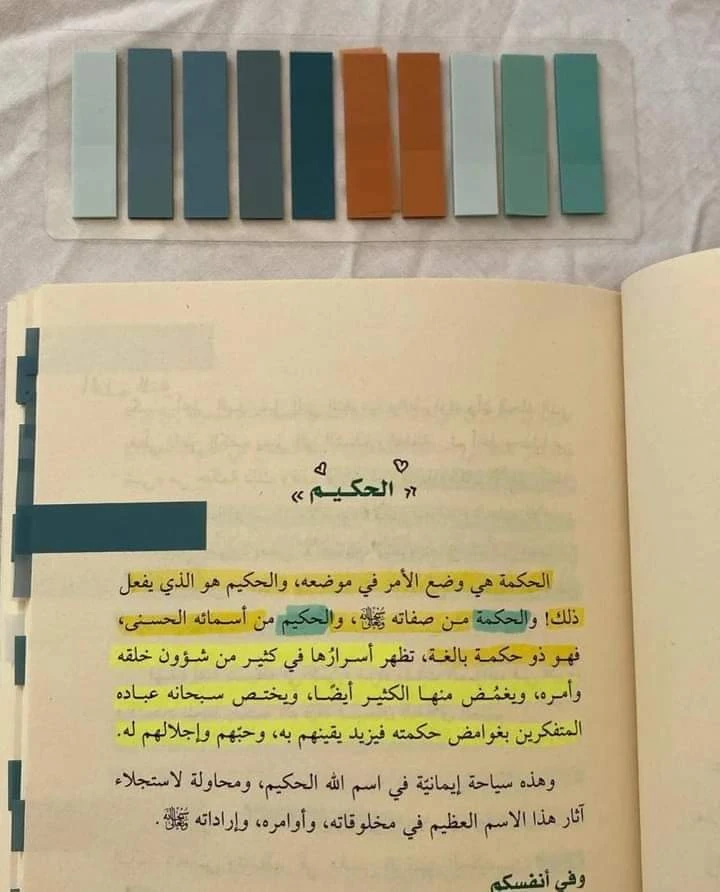 « الحكيم »
الحكمة هي وضع الأمر في موضعه، والحكيم هو الذي يفعل
ذلك! والحكمة من صفاته ﷻ، والحكيم من أسمائه الحسنى،
فهو ذو حكمة بالغة، تظهر أسرارُها في كثير من شؤون خلقه
وأمره، ويغمُض منها الكثير أيضًا، ويختص سبحانه عباده
المتفكرين بغوامض حكمته فيزيد يقينهم به، وحبّهم وإجلالهم له.
وهذه سياحة إيمانيّة في اسم الله الحكيم، ومحاولة لاستجلاء
آثار هذا الاسم العظيم في مخلوقاته، وأوامره، وإراداته ﷻ.
وفي أنفسكم